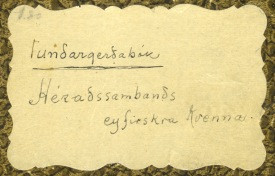 Fundargerðabók
Héraðssambands
eyfirskra kvenna.